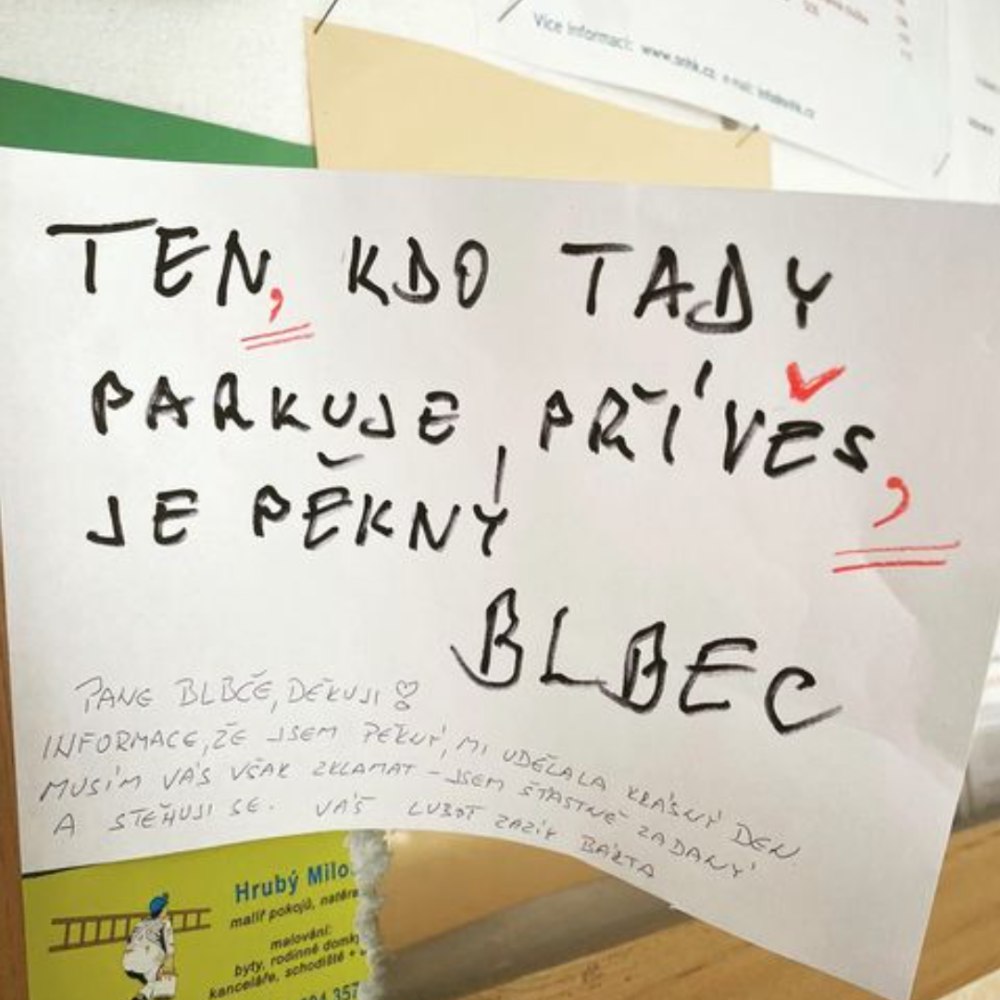 Více informací: www.snhk.cz e-mail: info@snhk.cz
TEN, KDO TADY
PARKUJE PŘÍVĚS,
JE PĚKNÝ
BLBEC
PANE BLBČE, DĚKUJI
INFORMACE, ŽE JSEM PĚKNÝ, MI UDĚLALA KRÁSNÝ DEN.
MUSÍM VÁS VŠAK ZKLAMAT - JSEM ŠŤASTNĚ ZADANÝ
A STĚHUJI SE. VÁŠ LUBOŠ BÁRTA
Hrubý Milo
malíř pokojů, natěra
malování:
byty, rodinné domk
kanceláře, schodiště
357